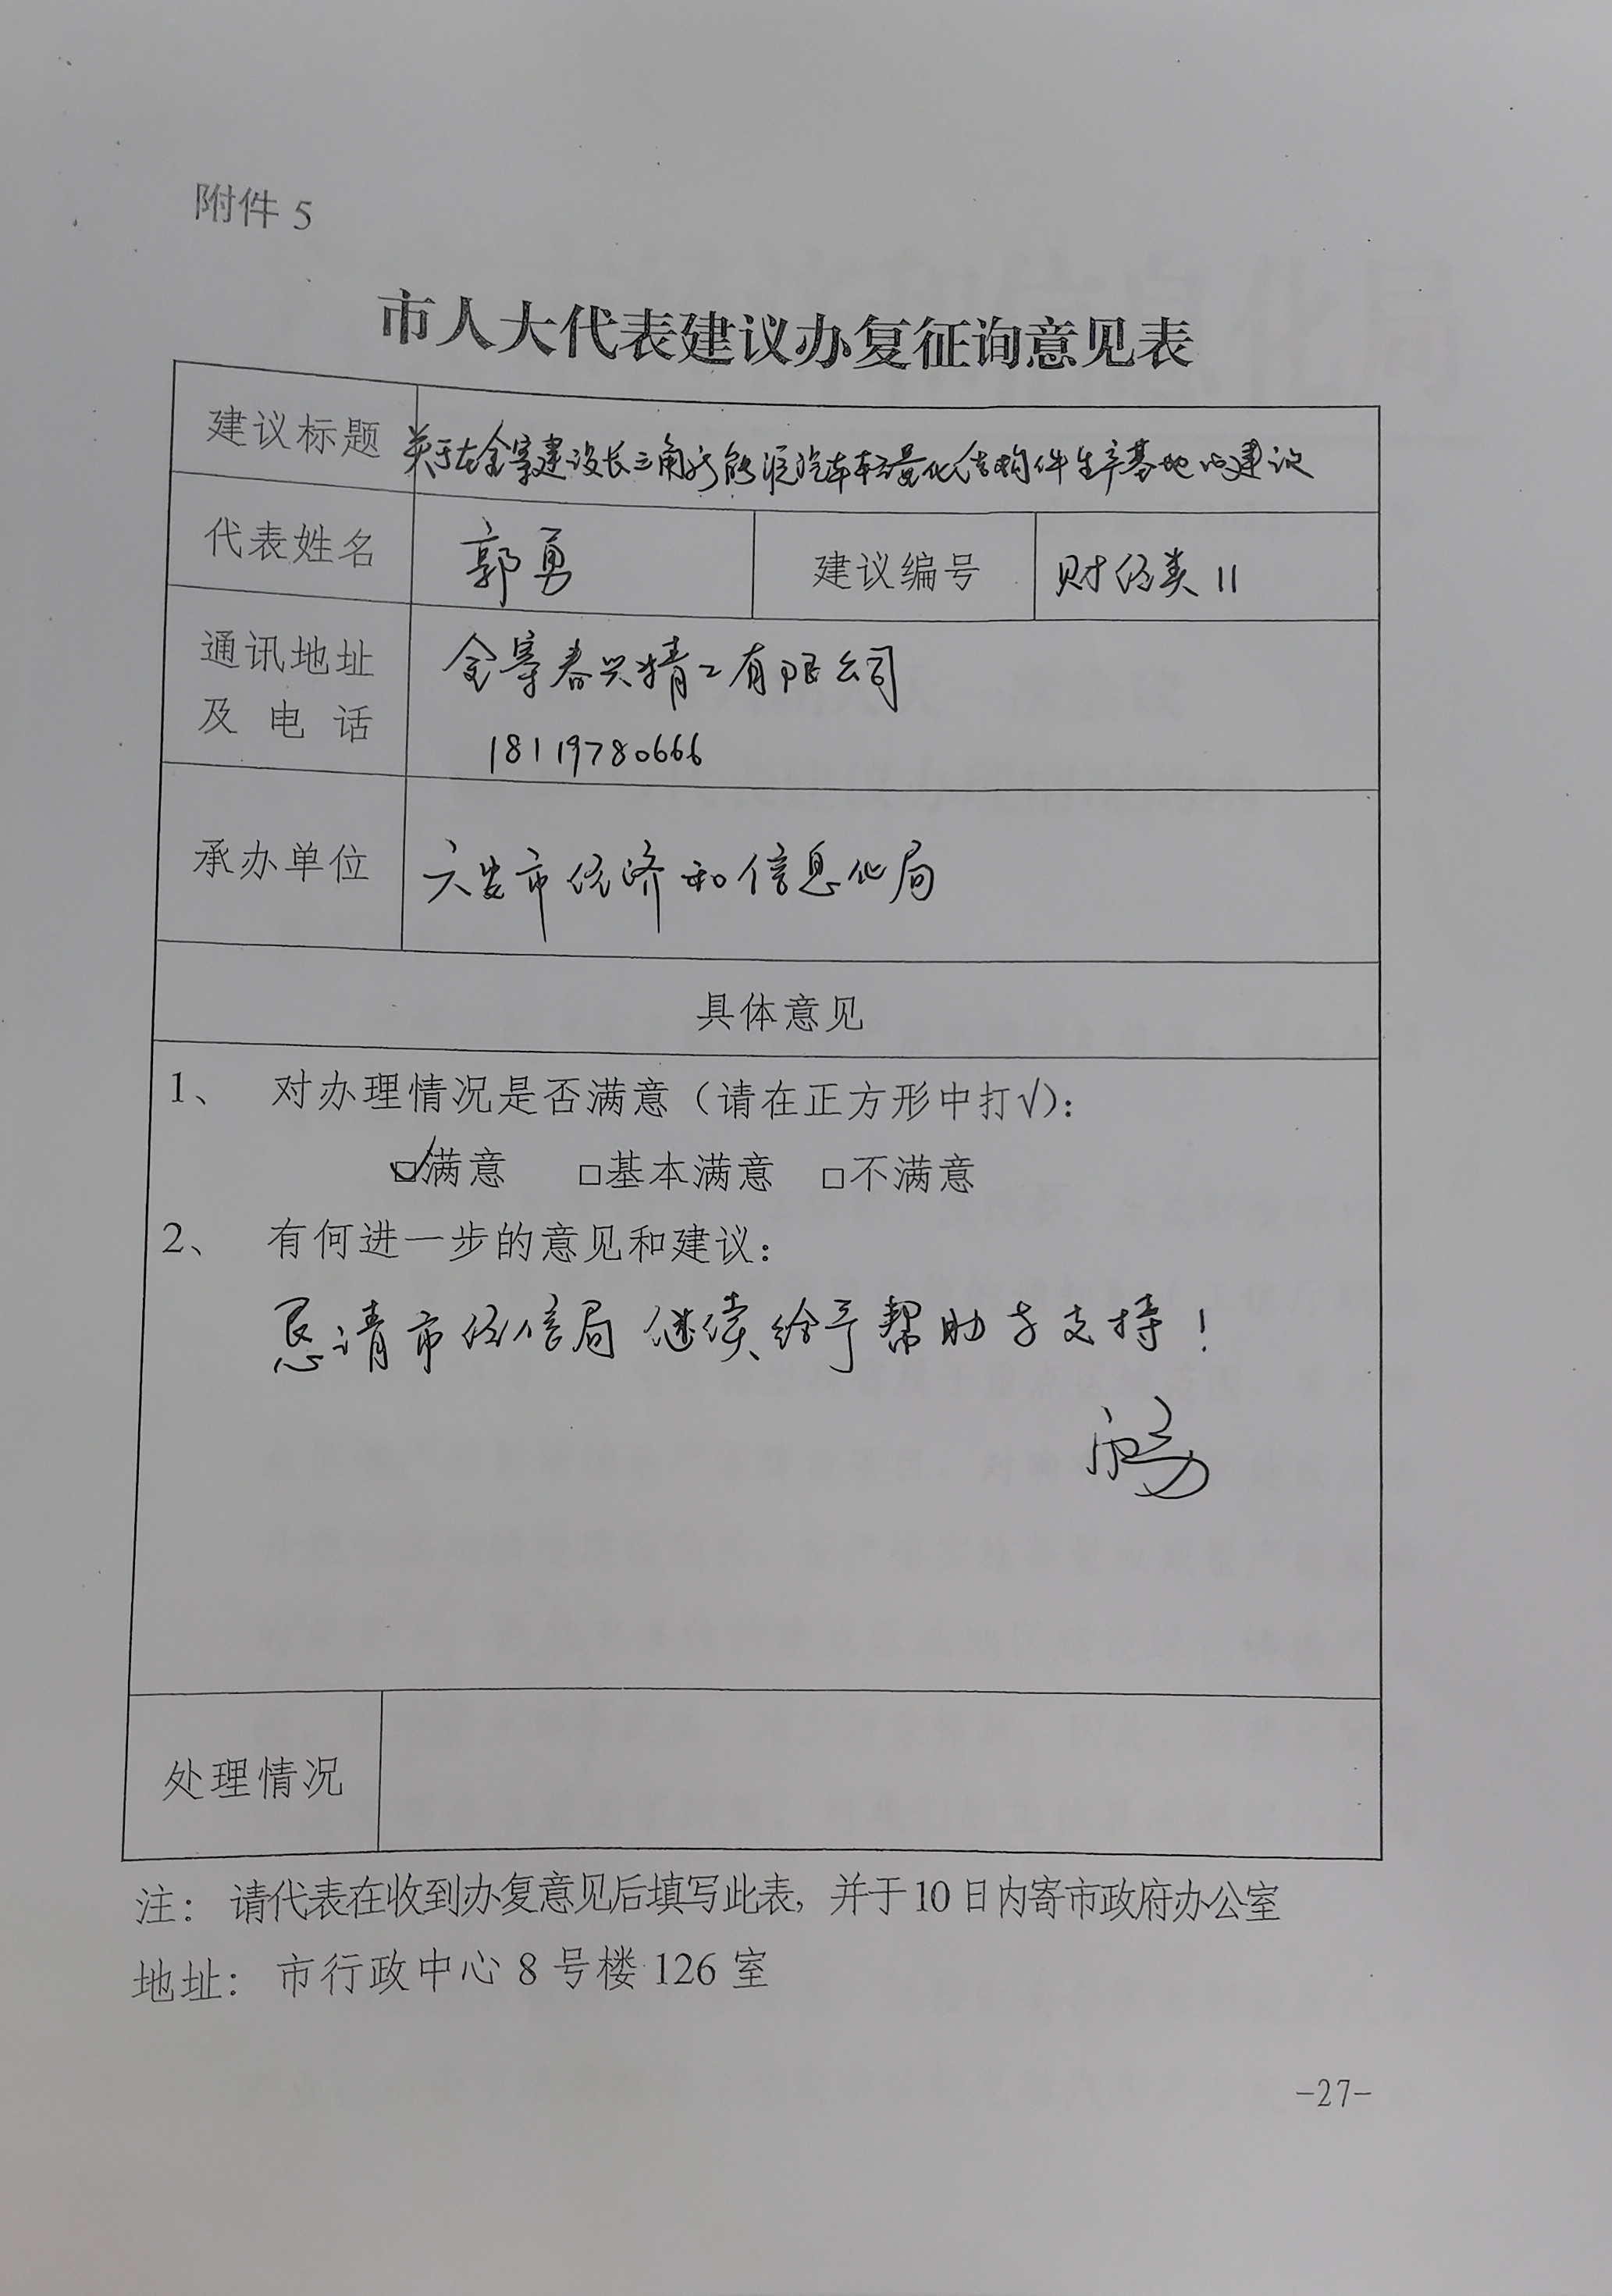 附件 5
市人大代表建议办复征询意见表
建议标题 关于在金寨建设长三角新能源汽车轻量化结构件生产基地的建议
代表姓名 郭勇 建议编号 财经类 11
通讯地址 金寨春兴精工有限公司
及电话 18119780666
承办单位 六安市经济和信息化局
具体意见
1、 对办理情况是否满意（请在正方形中打√）：
☑满意 □基本满意 □不满意
2、 有何进一步的意见和建议：
恳请市经信局继续给予帮助与支持！
处理情况
注： 请代表在收到办复意见后填写此表，并于 10 日内寄市政府办公室
地址： 市行政中心 8 号楼 126 室
-27-